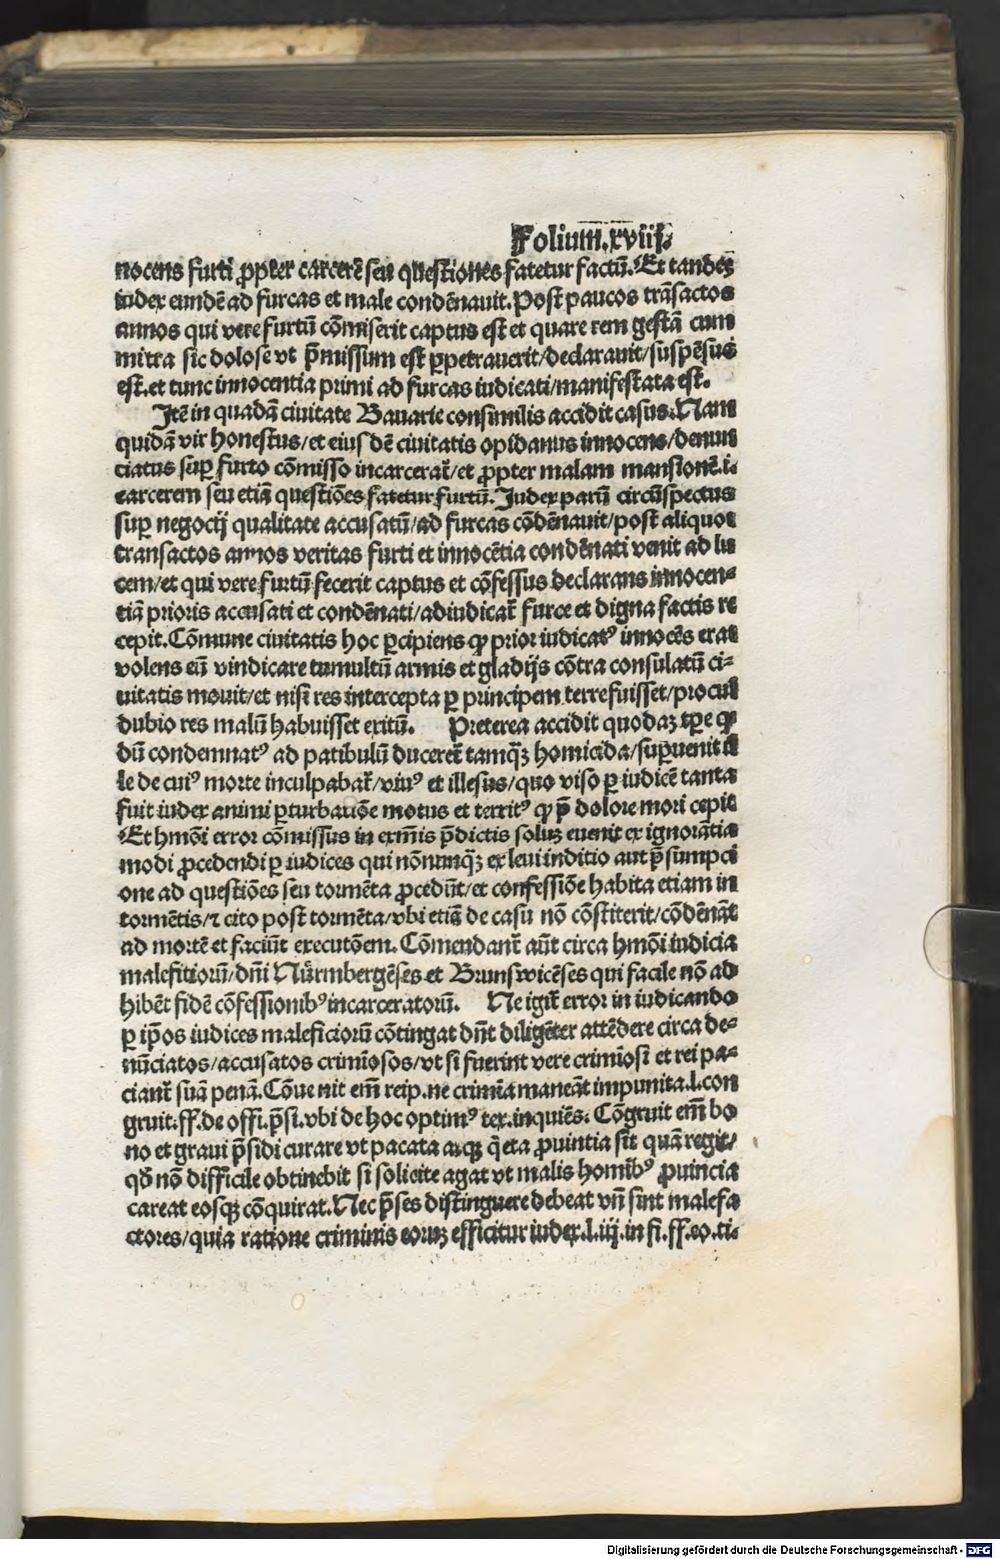 Folium.xviij.
nocens furti ꝓpter carcerē seu questiones fatetur factū. Et tandeꝫ
iudex eundē ad furcas et male condēnauit. Post paucos trāsactos
annos qui vere furtū cōmiserit captus est et quare rem gestā cum
mitra sic dolose vt p̄missum est ꝑpetrauerit/declarauit/suspēsus
est. et tunc innocentia primi ad furcas iudicati/manifestata est.
Itē in quadā ciuitate Bauarie consimilis accidit casus. Nam
quidā vir honestus/et eius dē ciuitatis opidanus innocens/denun
ciatus suꝑ furto cōmisso incarcerat᷑/et ꝓpter malam mansionē.i.
carcerem seu etiā questiōes fatetur furtū. Iudex parū circūspectus
suꝑ negocij qualitate accusatū/ad furcas cōdēnauit/post aliquot
transactos annos veritas furti et innocētia condēnati venit ad lu
cem/et qui vere furtū fecerit captus et cōfessus declarans innocen-
tiā prioris accusati et condēnati/adiudicat᷑ furce et digna factis re
cepit. Cōmune ciuitatis hoc ꝑcipiens ꝙ prior iudicatꝰ innocēs erat
volens eū vindicare tumultū armis et gladijs cōtra consulatū ci-
uitatis mouit/et nisi res intercepta ꝑ principem terre fuisset/procul
dubio res malū habuisset exitū. Preterea accidit quodaꝫ tꝑe ꝙ
dū condemnatꝰ ad patibulū duceret᷑ tamqꝫ homicida/suꝑuenit il
le de cuiꝰ morte inculpabat᷑/viuꝰ et illesus/quo viso ꝑ iudicē tanta
fuit iudex animi ꝑturbatiōe motus et territꝰ ꝙ p̄ dolore mori cepit
Et hmōi error cōmissus in exm̄is p̄dictis soluꝫ euenit ex ignorātia
modi ꝓcedendi ꝑ iudices qui nōnunqꝫ ex leui inditio aut p̄sumpci
one ad questiōes seu tormēta ꝓcedūt/et confessiōe habita etiam in
tormētis/⁊ cito post tormēta/vbi etiā de casu nō cōstiterit/cōdēnāt
ad mortē et faciūt executōem. Cōmendant᷑ aūt circa hmōi iudicia
malefitiorū/dn̄i Nürmbergēses et Brunswicēses qui facile nō ad
hibēt fidē cōfessionibꝰ incarceratorū. Ne igit᷑ error in iudicando
ꝑ ip̄os iudices maleficiorū cōtingat dn̄t diligēter attēdere circa de-
nūciatos/accusatos crimiosos/vt si fuerint vere crimiosi et rei pa-
ciant᷑ suā penā. Cōue nit em̄ reip. ne crimīa maneāt impunita.l.con
gruit.ff.de offi.p̄si. vbi de hoc optimꝰ tex. inquiēs. Cōgruit em̄ bo
no et graui p̄sidi curare vt pacata atqꝫ q̄eta ꝓuintia sit quā regit/
qd̄ nō difficile obtinebit si solicite agat vt malis homībꝰ ꝓuincia
careat eosqꝫ cōquirat. Nec p̄ses distinguere debeat vn̄ sint malefa
ctores/quia ratione criminis eoruꝫ efficitur iudex.l.iij.in fi.ff.eo.ti.
Digitalisierung gefördert durch die Deutsche Forschungsgemeinschaft - DFG